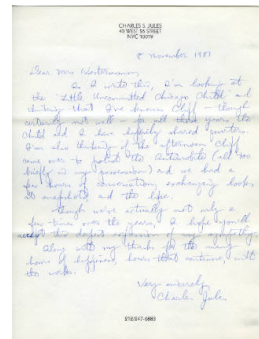 CHARLES S. JULES
NYC 10019
8 November 1981
Dear Mrs Westermann,
As I write this, I'm looking at
the "Little Uncommitted Chicago Child" and
thinking that I've known Cliff – though
certainly not all – for all these years the
Child and I have happily shared quarters.
I'm also thinking of the afternoon Cliff
came over to the Antimobile (all too
briefly in my possession) and we had a
few hours of conversation, exchanging books,
snapshots, and the like.
Though we've actually met only a
few times over the years, I do hope you'll
accept this expression of my sympathy.
Along with my thanks for the many
hours of happiness, hours that continue, with
the works.
Very sincerely,
Charles Jules